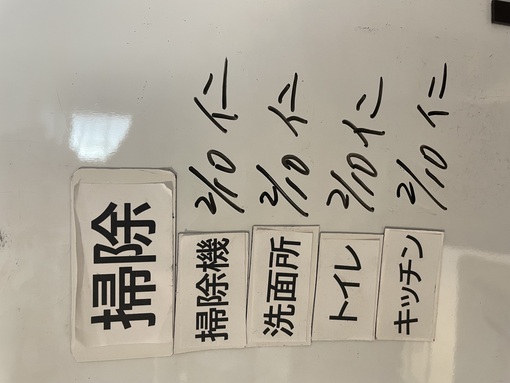 掃除
掃除機 2/10 イニ
洗面所 2/10 イニ
トイレ 2/10 イニ
キッチン 2/10 イニ